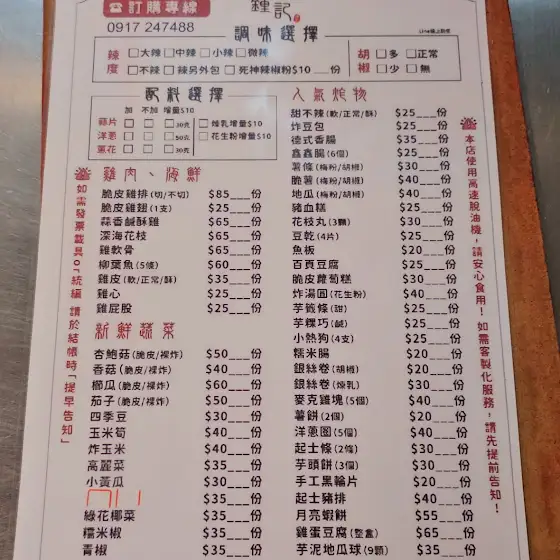 ☎訂購專線
0917 247488
鍾記
Line線上點餐
調味選擇
辣度 □大辣 □中辣 □小辣 □微辣
□不辣 □辣另外包 □死神辣椒粉$10___份
胡椒 □多 □正常
□少 □無
配料選擇
加 不加 增量$10
蒜片 □ □ □30克
洋蔥 □ □ □50克
蔥花 □ □ □30克
□煉乳增量$10
□花生粉增量$10
雞肉、海鮮
脆皮雞排(切/不切) $85___份
脆皮雞翅(1支) $25___份
蒜香鹹酥雞 $65___份
深海花枝 $65___份
雞軟骨 $65___份
柳葉魚(5條) $60___份
雞皮(軟/正常/酥) $35___份
雞心 $25___份
雞屁股 $25___份
新鮮蔬菜
杏鮑菇(脆皮/裸炸) $50___份
香菇(脆皮/裸炸) $40___份
櫛瓜(脆皮/裸炸) $60___份
茄子(脆皮/裸炸) $50___份
四季豆 $30___份
玉米筍 $40___份
炸玉米 $40___份
高麗菜 $35___份
小黃瓜 $30___份
$35___份
綠花椰菜 $35___份
糯米椒 $35___份
青椒 $35___份
人氣炸物
甜不辣(軟/正常/酥) $25___份
炸豆包 $25___份
德式香腸 $35___份
鑫鑫腸(6個) $25___份
薯條(梅粉/胡椒) $30___份
脆薯(梅粉/胡椒) $40___份
地瓜(梅粉/胡椒) $40___份
豬血糕 $25___份
花枝丸(3顆) $30___份
豆乾(4片) $25___份
魚板 $20___份
百頁豆腐 $25___份
脆皮蘿蔔糕 $30___份
炸湯圓(花生粉) $40___份
芋籤條(甜) $25___份
芋粿巧(鹹) $25___份
小熱狗(4支) $25___份
糯米腸 $20___份
銀絲卷(胡椒) $20___份
銀絲卷(煉乳) $30___份
麥克雞塊(5個) $40___份
薯餅(2個) $20___份
洋蔥圈(5個) $40___份
起士條(2條) $30___份
芋頭餅(3個) $30___份
手工黑輪片 $20___份
起士豬排 $40___份
月亮蝦餅 $55___份
雞蛋豆腐(整盒) $65___份
芋泥地瓜球(9顆) $35___份
如需發票載具o「統編」請於結帳時「提早告知」
本店使用高速脫油機,請安心食用!如需客製化服務,請先提前告知!